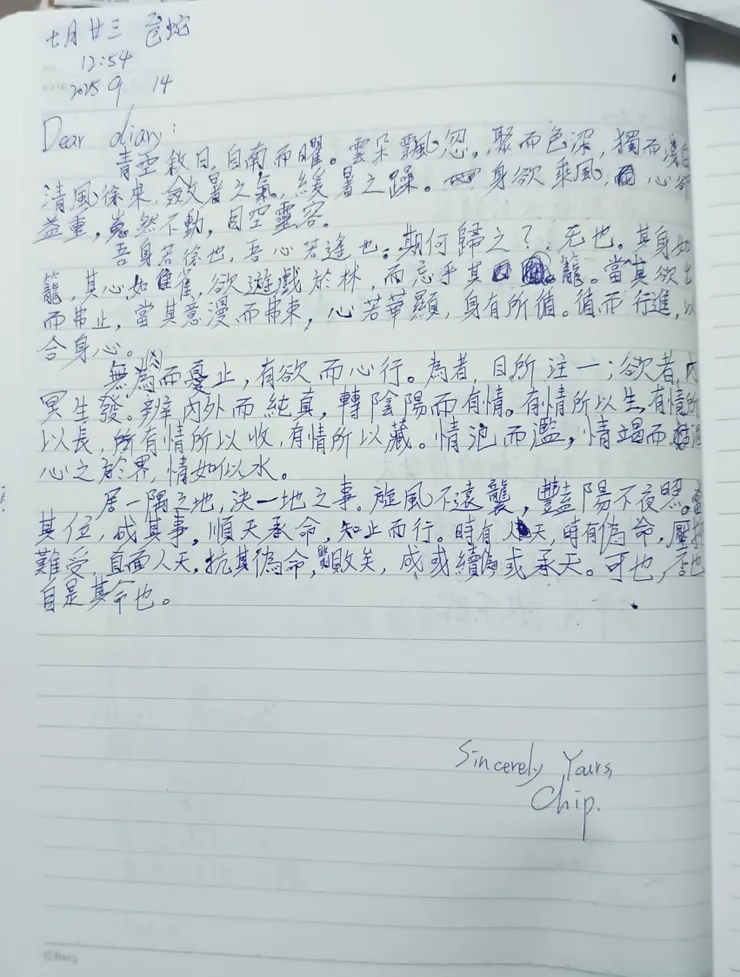 七月廿三 乙蛇
12:54
2025 9 14
Dear diary:
青空啟日,自南而曜。雲朵飄忽,聚而色深,獨而邊白
清風徐來,斂暑之氣,緩暑之躁。身欲乘風,心卻
益重,嵬然不動,目空靈容。
吾身若徐也,吾心若逢也。期何歸之?:无也。其身如
籠,其心如雀,欲遊戲於林,而忘乎其籠。當其欲出
而弗止,當其意漫而弗束,心若華顯,身有所值。值而行進,以
合身心。
無為而憂止,有欲而心行。為者,目所注一;欲者,內
冥生發。辨內外而純真,轉陰陽而有情。有情所以生,有情所
以長,所有情所以收,有情所以藏。情泡而濫,情竭而
心之於界,情如似水。
居一隅之地,決一地之事。旋風不遠襲,豔陽不夜照。當
其位,成其事。順天承命,知止而行。時有人天,時有偽命,壓抑
難受,直面人天,抗其偽命,敗矣,成或續或承天。可也,否也
自是其命也。
Sincerely Yours,
Chip.
©Berg